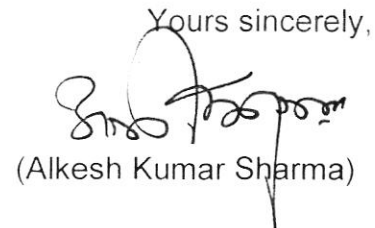 Yours sincerely,
(Alkesh Kumar Sharma)